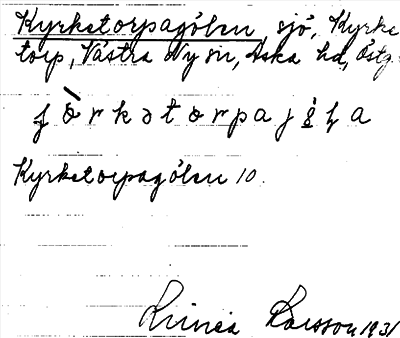 Kyrketorpagölen, sjö, Kyrke
torp, Västra Ny sn, Aska hd, Östg.
Kyrketorpagölen 10.
Linnéa Larsson 1931